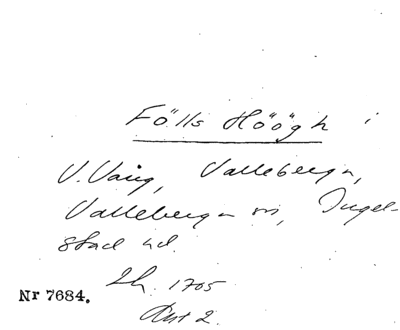 Fölls Höögh i
V. Vång, Valleberga,
Valleberga sn, Ingel-
stad hd.
Lh. 1705
Akt 2.
Nr 7684.